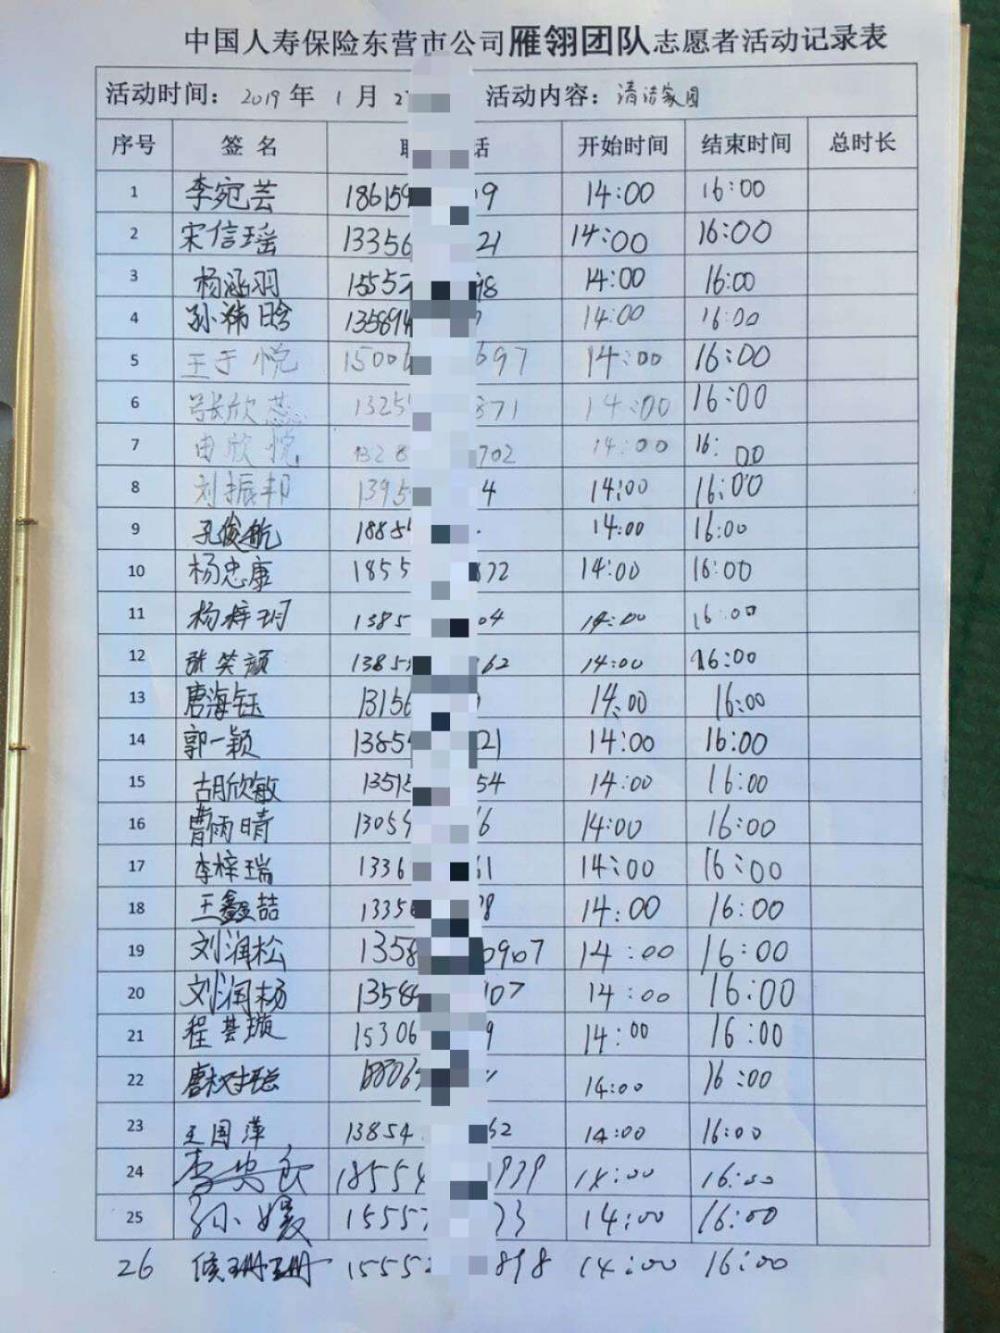 中国人寿保险东营市公司雁翎团队志愿者活动记录表
活动时间：2019年1月2 活动内容：清洁家园
序号 签名 话 开始时间 结束时间 总时长
1 李宛芸 186159 9 14:00 16:00
2 宋信瑶 13356 21 14:00 16:00
3 杨涵羽 1555 98 14:00 16:00
4 孙 晗 135894 14:00 16:00
5 王于悦 15006 697 14:00 16:00
6 张欣蕊 1325 371 14:00 16:00
7 由欣悦 1328 702 14:00 16:00
8 刘振邦 1395 4 14:00 16:00
9 孔俊航 1885 14:00 16:00
10 杨忠康 1855 872 14:00 16:00
11 杨梓玥 1385 04 14:00 16:00
12 张笑颜 1385 62 14:00 16:00
13 唐海钰 13156 14:00 16:00
14 郭一颖 13854 21 14:00 16:00
15 胡欣敏 1351 54 14:00 16:00
16 曹雨晴 1305 6 14:00 16:00
17 李梓瑞 1336 61 14:00 16:00
18 王鑫喆 1335 8 14:00 16:00
19 刘润松 1358 0907 14:00 16:00
20 刘润杨 13584 907 14:00 16:00
21 程 璇 15306 9 14:00 16:00
22 唐 聪 18806 14:00 16:00
23 王国萍 13854 62 14:00 16:00
24 18554 939 14:00 16:00
25 孙媛 1555 73 14:00 16:00
26 侯珊珊 1555 898 14:00 16:00